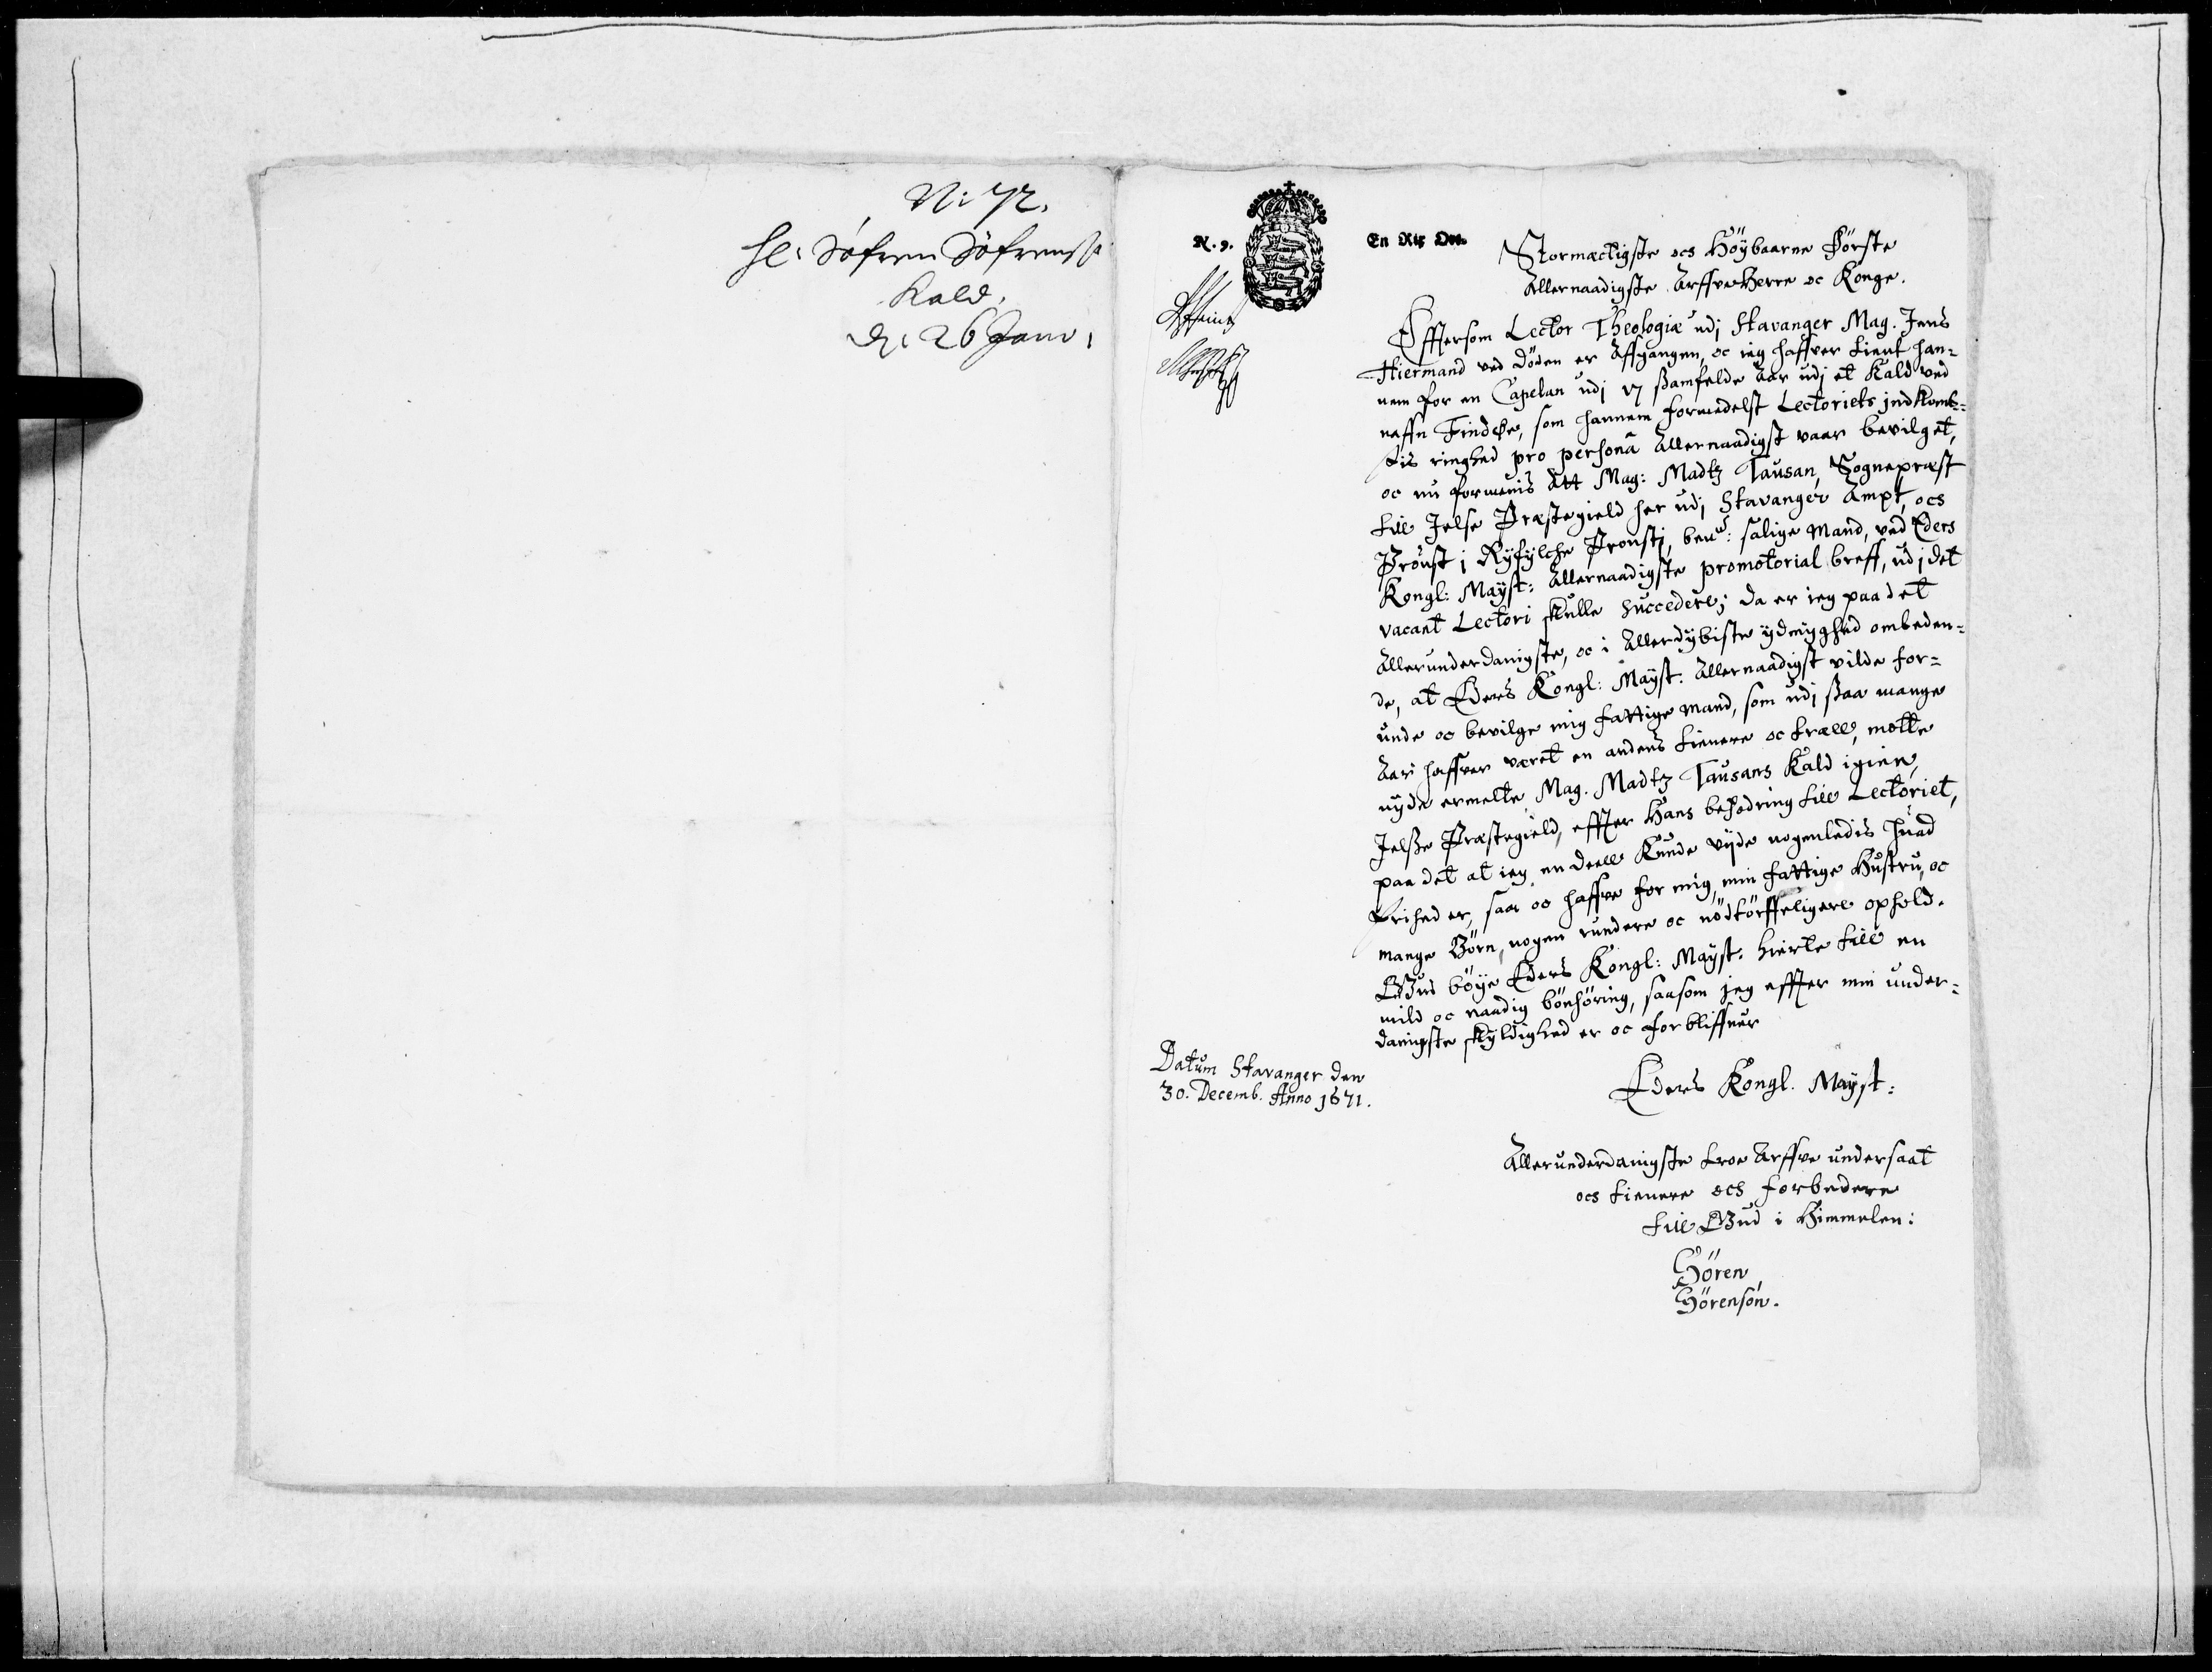 N: 72.
Hl: Søfren Søfrens:
Kald.
D: 26 Janv:
N. 9.
En Rix Ort.
Stormæctigste ocs Höÿbaarne Första
Allernaadigste Arffve Herre oc Konge.
Efftersom Lector Theologiæ udj Stavanger Mag. Jens
Hiermand ved Döden er Affgangen, oc ieg haffver tient han¬
nem for en Capelan udj 17 samfelde Aar udj et Kald ved
naffn Findöe, som hannem formedelst Lectoriets jndkomb¬
stis ringhed pro persona Allernaadigst vaar bevilget,
oc nu formenis Att Mag: Madtz Tausan, Sognepræst
till Jelse Præstegield her udj Stavanger Ampt, ocs
Proust i Ryfylche Proustj, bemt: salige Mand, ved Eders
Kongl: Mayst: Allernaadigste promotorial breff, udj det
vacant Lectori skulle succedere; da er ieg paa det
Allerunderdanigste, oc i Allerdybiste ydmyghed ombeden¬
de, at Eders Kongl: Mayst: Allernaadigst vilde for¬
unde oc bevilge mig fattige Mand, som udj ssaa mange
Aar haffver været en andens tienere oc træll, motte
nyde ermelte Mag. Madtz Tausans Kald igien,
Jelsse Præstegield, effter Hans befodring till Lectoriet,
paa det at ieg en deell Kunde vijde nogenledis huad
Frihed er, saa oc haffve for mig, min fattige Hustru, oc
mange Börn, nogen rundere oc nödtörffteligere ophold.
Gud böye Eders Kongl: Mayst. hierte till en
mild oc naadig bönhöring, saasom jeg effter min under¬
danigste skyldighed er oc forbliffver
Datum Stavanger den
30. Decemb. Anno 1671.
Eders Kongl. Mayst:
Allerunderdanigste troe Arffve undersaat
ocs tienere ocs forbedere
till Gud i Himmelen:
Sören
Sörensön.